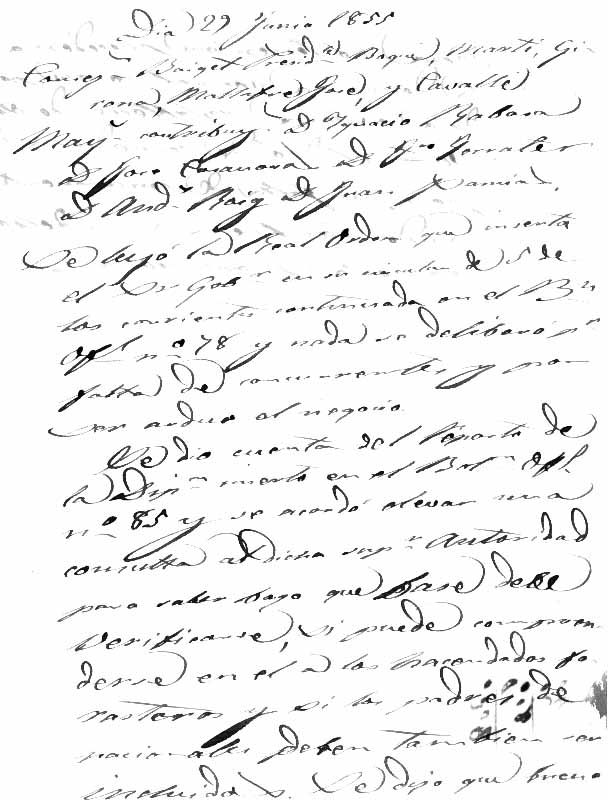 Dia 29 Junio 1855
Concep.n Baiget Presid.te Roque, Marti, Gi-
rona, Mallafre José, y Cavallé
May.s contribuy.s D. Ygnacio Rabasa
D. Jose Casanovas D. Fco Ferraler
D. And.s Roig D. Juan
Se leyó la Real Orden que inserta
el Sr Gob.r en su circular de 5 de
los corrientes continuada en el B.n
Ofl. nº 78 y nada se deliberó pr
falta de concurrentes y por
ser arduo al negocio.
Se dio cuenta del reparto de
la Dip.n inserto en el Bol.n Ofl.
nº 85 y se acordó elevar una
consulta a dicha sup.r Autoridad
para saber bajo que base debe
verificarse, si puede compren-
derse en el a los hacendados fo-
rasteros y si los padres de
nacionales deben tambien ser
incluidos. Se dijo que bueno